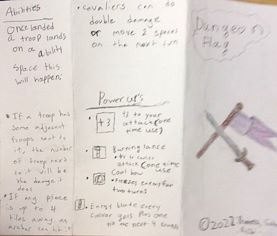 Abilities
Once landed
a troop lands
on a ability
space this
will happen:
• If a troop has
some adjacent
troops next to
it, the number
of troop next
to it will be
the damage it
does
• If any piece
is up to 4
tiles away an
archer can hit it
• Cavaliers can do
double damage
or move 2 spaces
on the next turn
Power up's
+3
to your
attack (one
time use)
Burning lance
attack (one time
use)
• Freezes enemy for
two turns
every
plus one
next
Dungeon
Flag
©2022